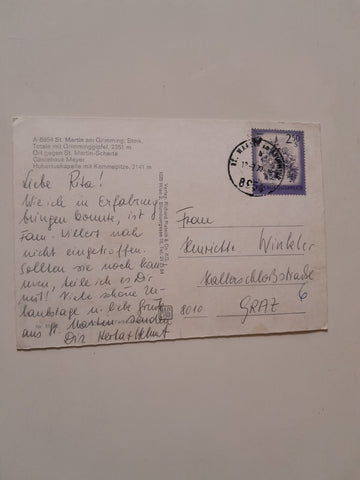 A-8954 St. Martin am Grimming, Stmk.
Totale mit Grimminggipfel, 2351 m
Ort gegen St. Martin-Scharte
Gästehaus Mayer
Hubertuskapelle mit Kammspitze, 2141 m
Liebe Rita!
Wie ich in Erfahrung
bringen konnte, ist
Fam. Villert noch
nicht eingetroffen.
Sollten sie noch kom
men, teile ich es Dir
mit! Viele schöne Ur
laubstage u. liebe Grüße
aus St. Martin senden
Dir Herta + Helmut
Verlag
2.50
8954
Frau
Henriette Winkler
Wallerschloßstraße
6
8010 GRAZ